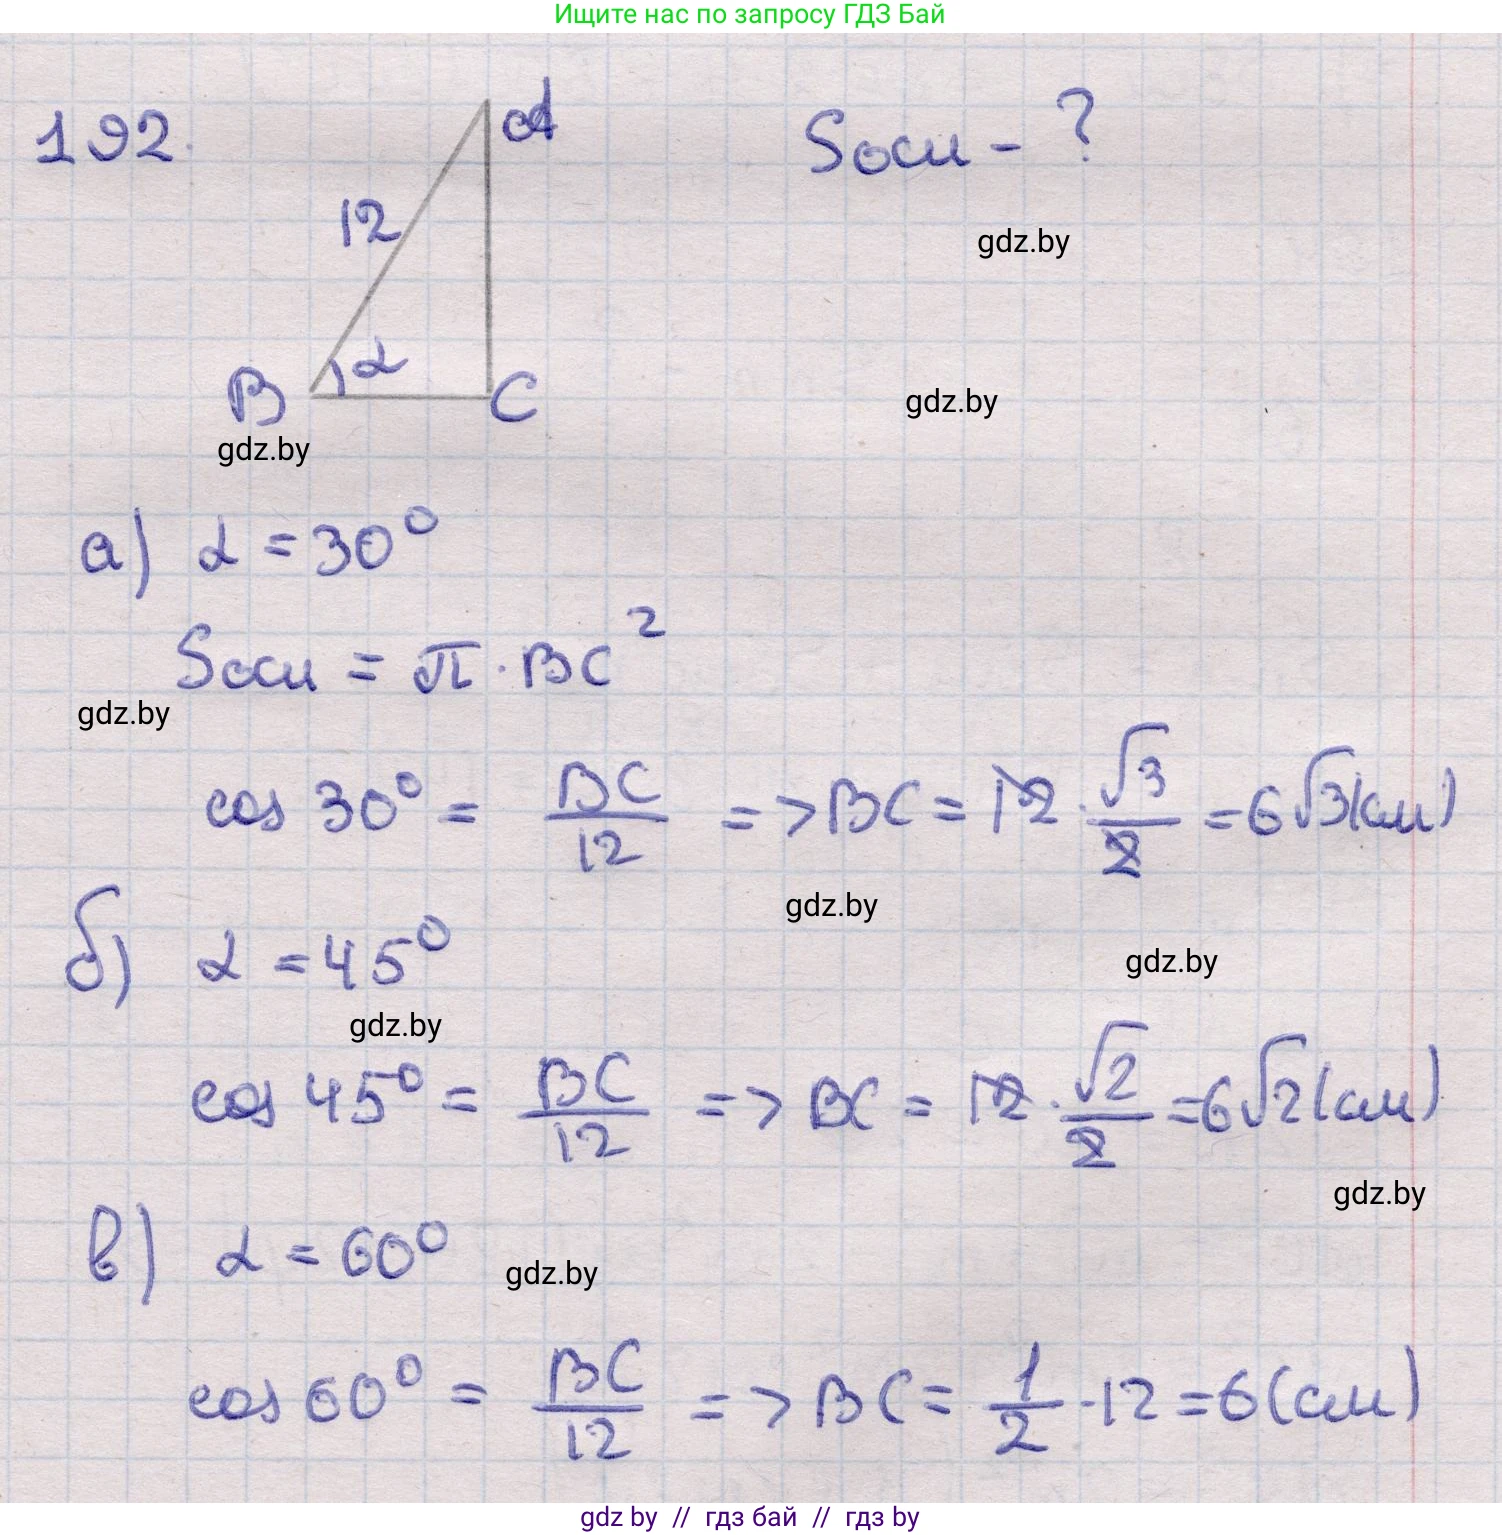 Ищите нас по запросу ГДЗ Бай
192.
A
12
α
B
C
Sосн - ?
gdz.by
gdz.by
gdz.by
а) α = 30°
Sосн = π · BC²
gdz.by
cos 30° = BC/12 => BC = 12 · √3/2 = 6√3(см)
gdz.by
б) α = 45°
gdz.by
gdz.by
cos 45° = BC/12 => BC = 12 · √2/2 = 6√2(см)
gdz.by
в) α = 60°
gdz.by
cos 60° = BC/12 => BC = 1/2 · 12 = 6(см)
gdz by // гдз бай // гдз by